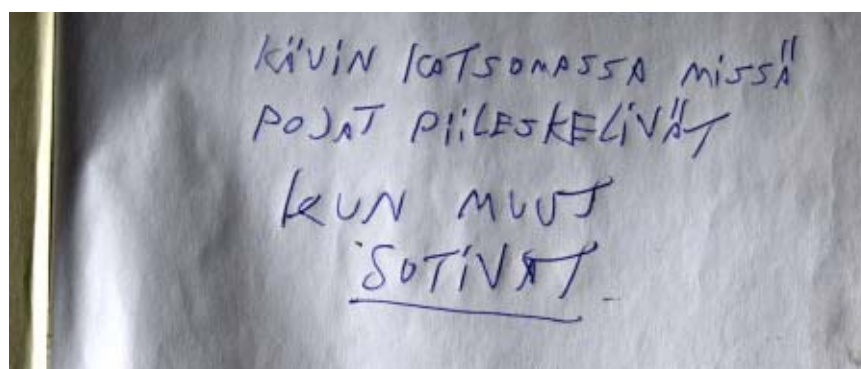 KÄVIN KATSOMASSA MISSÄ
POJAT PIILESKELIVÄT
KUN MUUT
SOTIVAT.